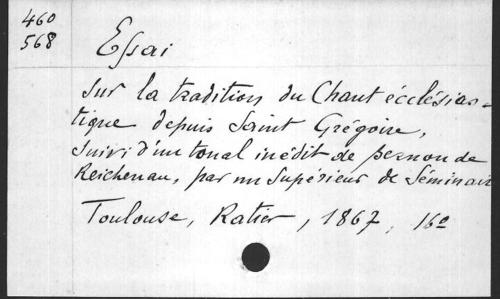 460
568
Essai
sur la tradition du Chant écclésias-
tique depuis Saint Grégoire,
suivi d'un tonal inédit de Bernon de
Reichenau, par un Supérieur de Séminair
Toulouse, Ratier, 1867, 16º